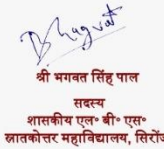 Bhagvat
श्री भगवत सिंह पाल
सदस्य
शासकीय एल॰ बी॰ एस॰
स्नातकोत्तर महाविद्यालय, सिरोंज